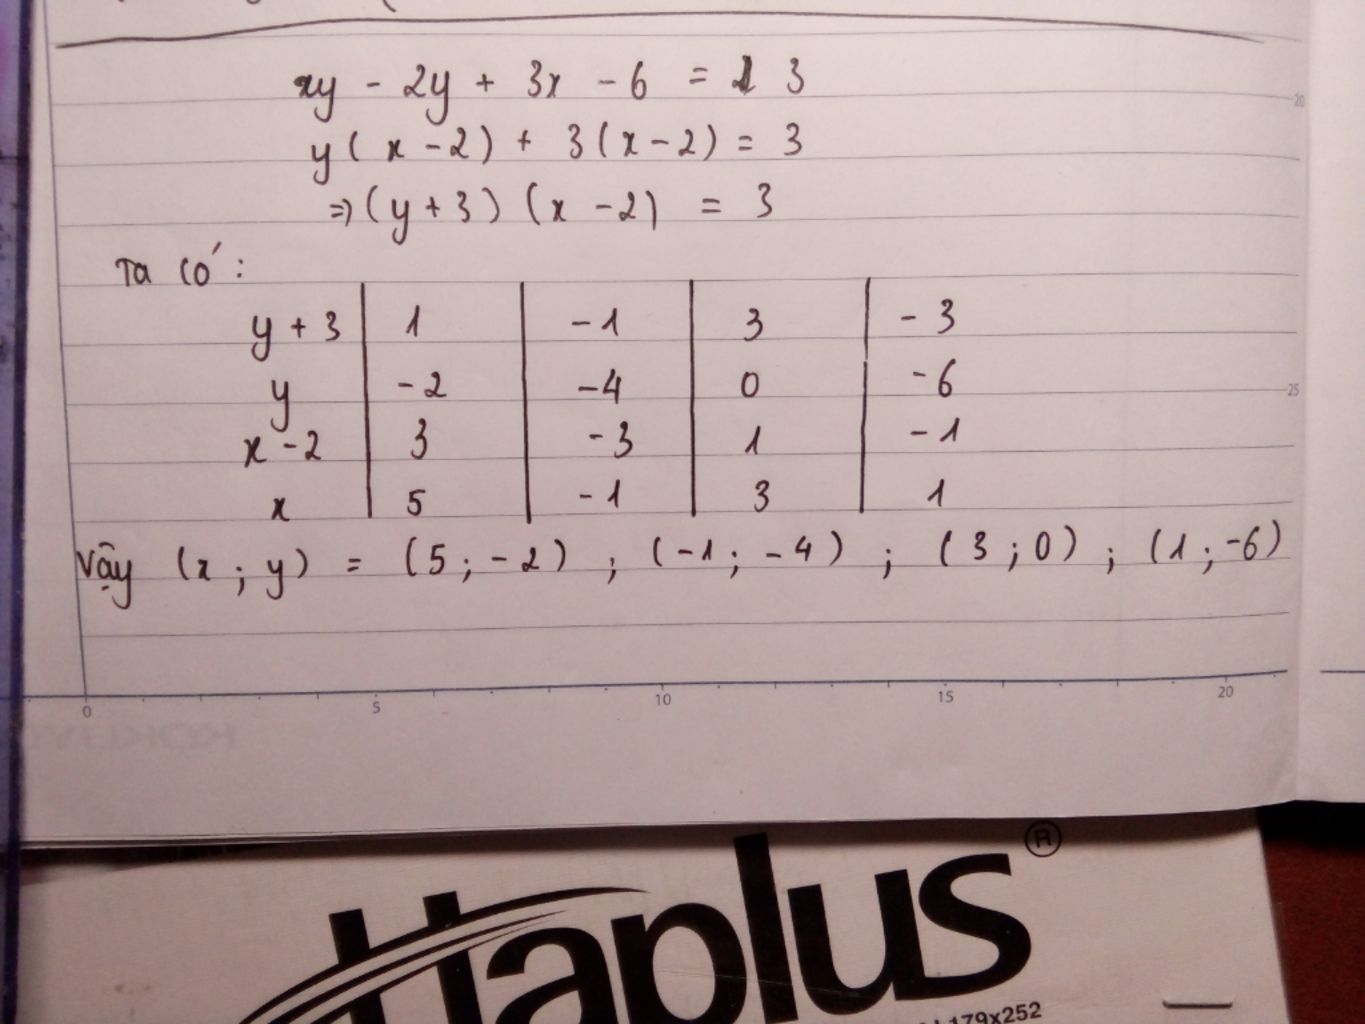 xy - 2y + 3x - 6 = 3
y ( x - 2 ) + 3 ( x - 2 ) = 3
=> ( y + 3 ) ( x - 2 ) = 3
Ta có :
y + 3 | 1 | - 1 | 3 | - 3
y | - 2 | - 4 | 0 | - 6
x - 2 | 3 | - 3 | 1 | - 1
x | 5 | - 1 | 3 | 1
Vậy ( x ; y ) = ( 5 ; - 2 ) ; ( - 1 ; - 4 ) ; ( 3 ; 0 ) ; ( 1 ; - 6 )
20
25
0 5 10 15 20
Haplus ®
179x252